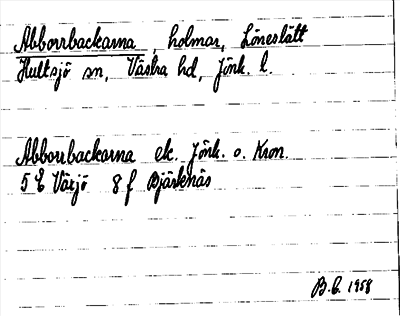 Abborrbackarna, holmar, Löneslätt
Hultsjö sn, Västra hd, Jönk. l.
Abborrbackarna ek. Jönk. o. Kron.
5 E Växjö 8 f Bjärknäs
B.E. 1958